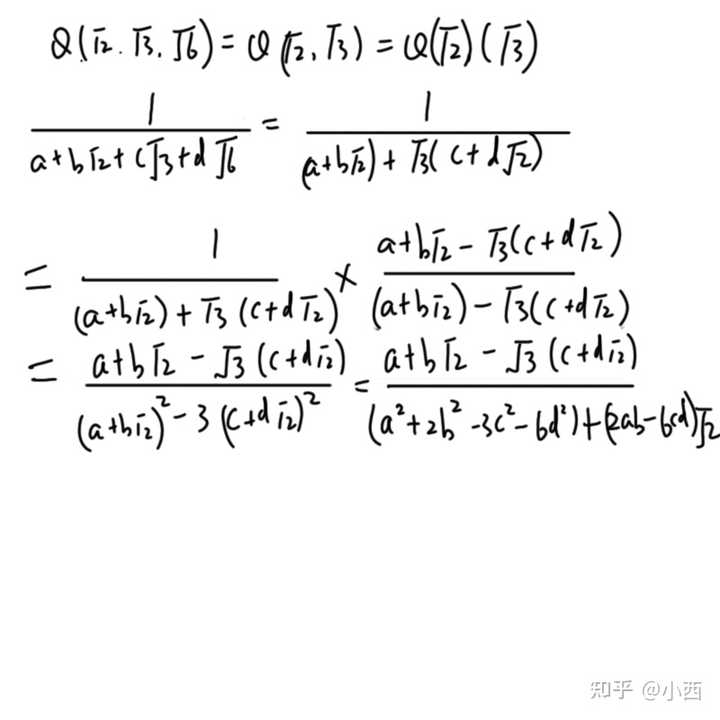 Q(√2. √3. √6) = Q(√2, √3) = Q(√2)(√3)
1/(a+b√2+c√3+d√6) = 1/((a+b√2)+√3(c+d√2))
= 1/((a+b√2)+√3(c+d√2)) × (a+b√2-√3(c+d√2))/((a+b√2)-√3(c+d√2))
= (a+b√2-√3(c+d√2))/((a+b√2)²-3(c+d√2)²) = (a+b√2-√3(c+d√2))/((a²+2b²-3c²-6d²)+(2ab-6cd)√2)
知乎 @小西